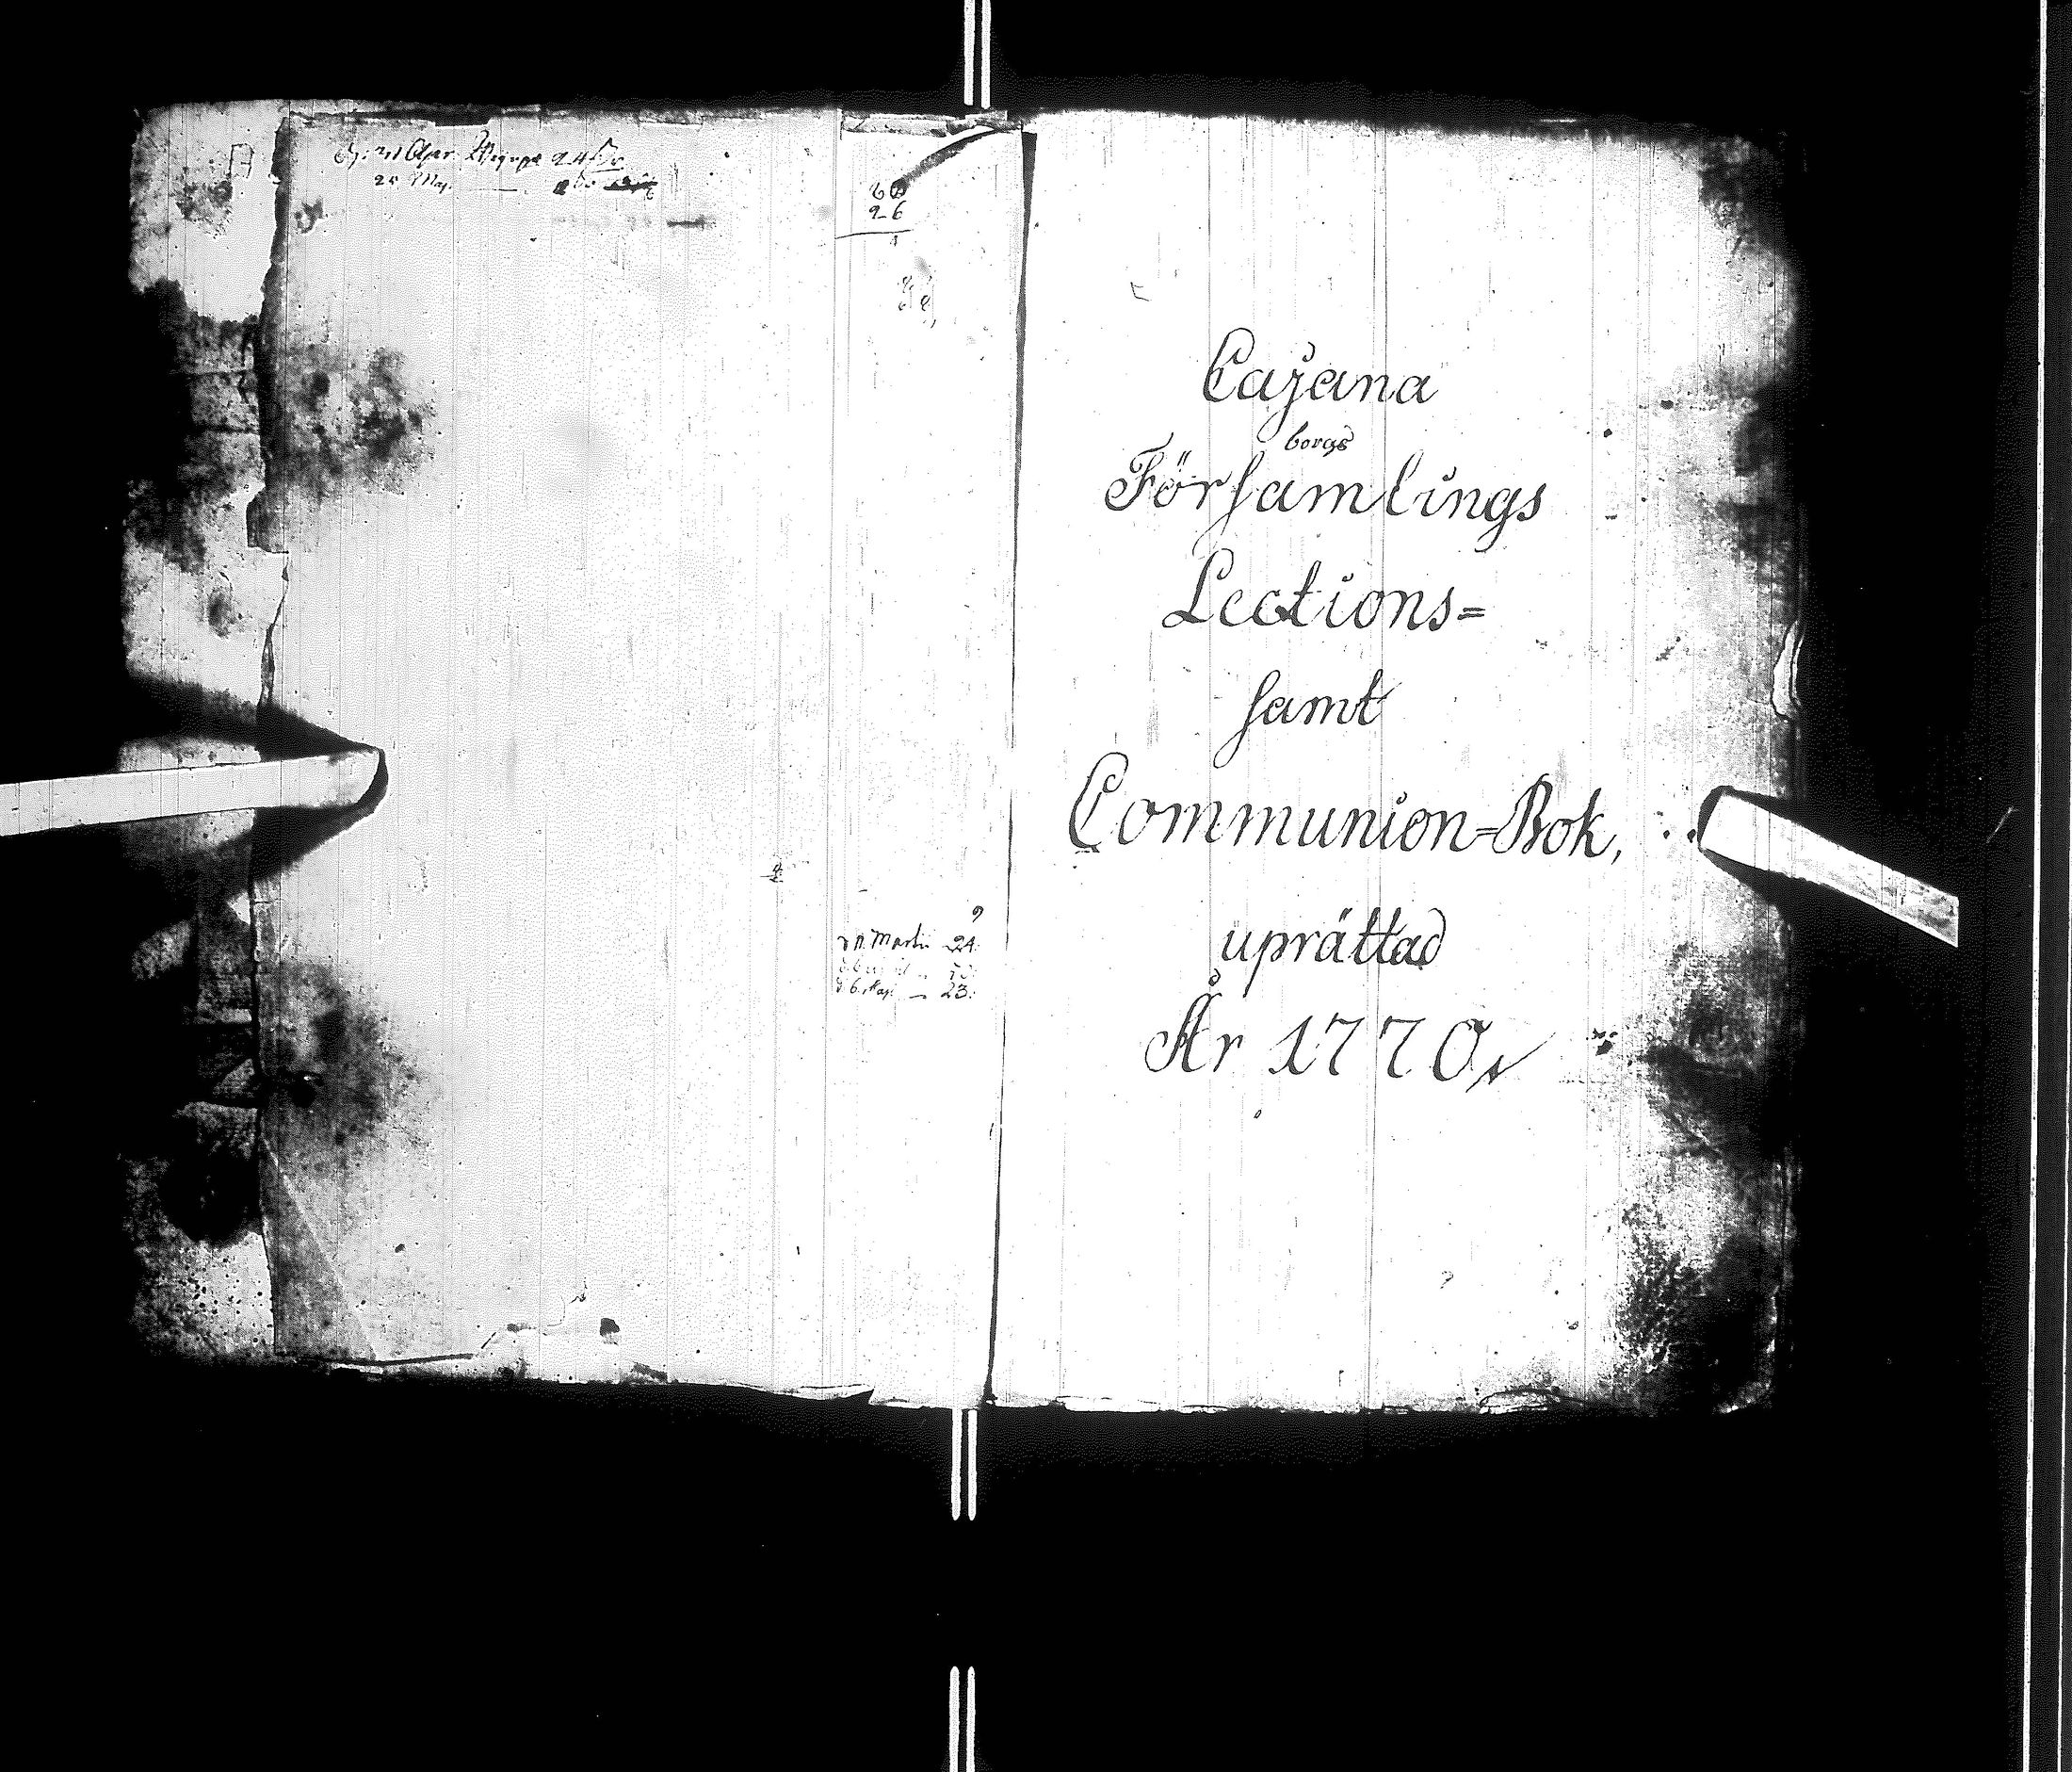 20 Maj.
66
26
Martii 24.
d. 6. Maji — 23.
Cajana
borgs
Församlings
Lections=
samt
Communion=Bok,
uprättad
År 1770,